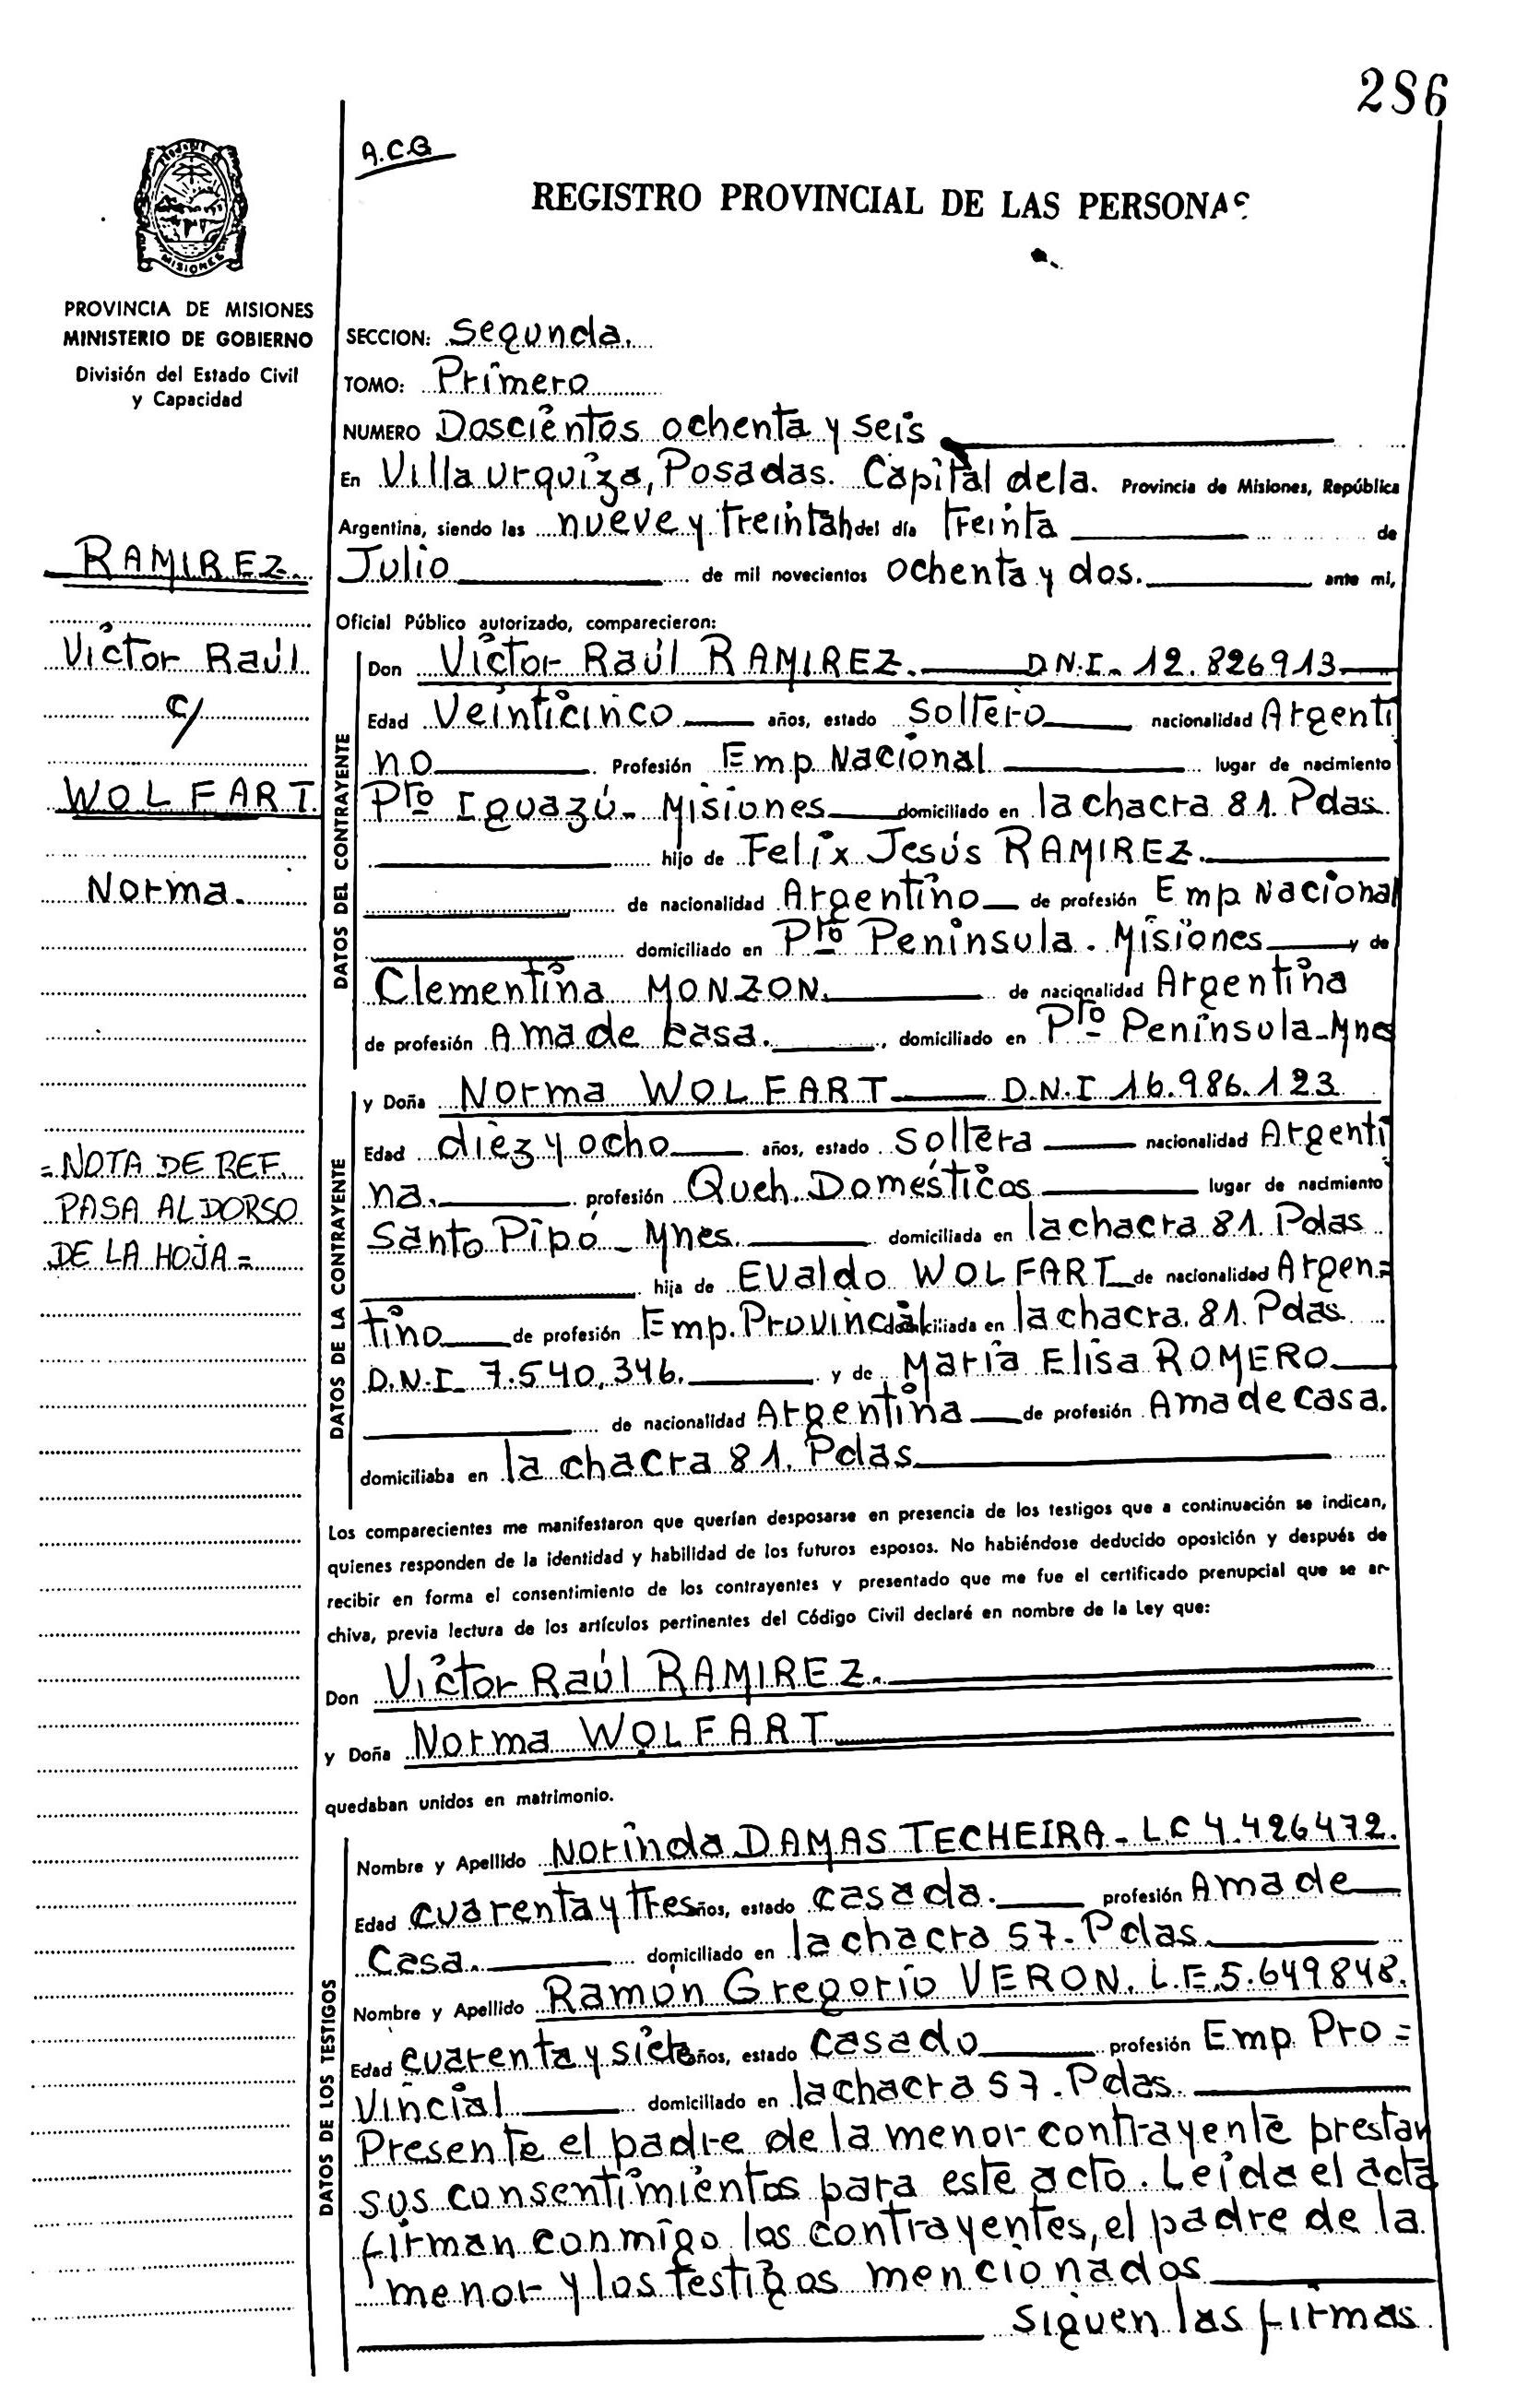 286
A.C.G
REGISTRO PROVINCIAL DE LAS PERSONAS
MISIONES
PROVINCIA DE MISIONES
MINISTERIO DE GOBIERNO
División del Estado Civil
y Capacidad
RAMIREZ
Victor Raúl
c/
WOLFART
Norma.
=NOTA DE REF.
PASA AL DORSO
DE LA HOJA=
SECCION: Segunda.
TOMO: Primero
NUMERO Doscientos ochenta y seis
En Villa Urquiza, Posadas. Capital de la. Provincia de Misiones, República
Argentina, siendo las nueve y treinta h del día treinta de
Julio de mil novecientos ochenta y dos. ante mi,
Oficial Público autorizado, comparecieron:
DATOS DEL CONTRAYENTE
Don Victor Raúl RAMIREZ. D.N.I. 12.826913
Edad Veinticinco años, estado Soltero nacionalidad Argenti
no Profesión Emp Nacional lugar de nacimiento
Pto Iguazú - Misiones domiciliado en la chacra 81. Pdas.
hijo de Felix Jesús RAMIREZ.
de nacionalidad Argentino de profesión Emp Nacional
domiciliado en Pto Peninsula. Misiones y de
Clementina MONZON. de nacionalidad Argentina
de profesión Ama de casa., domiciliado en Pto Peninsula-Mnes
DATOS DE LA CONTRAYENTE
y Doña Norma WOLFART D.N.I 16.986.123
Edad diez y ocho años, estado soltera nacionalidad Argenti
na. profesión Queh. Domésticos lugar de nacimiento
Santo Pipó - Mnes. domiciliada en la chacra 81. Pdas.
hija de Evaldo WOLFART de nacionalidad Argen=
tino de profesión Emp. Provincial domiciliada en la chacra. 81. Pdas
D.N.I 7.540.346. y de María Elisa ROMERO
de nacionalidad Argentina de profesión Ama de casa.
domiciliaba en la chacra 81. Pdas
Los comparecientes me manifestaron que querían desposarse en presencia de los testigos que a continuación se indican,
quienes responden de la identidad y habilidad de los futuros esposos. No habiéndose deducido oposición y después de
recibir en forma el consentimiento de los contrayentes y presentado que me fue el certificado prenupcial que se ar-
chiva, previa lectura de los artículos pertinentes del Código Civil declaré en nombre de la Ley que:
Don Victor Raúl RAMIREZ.
y Doña Norma WOLFART
quedaban unidos en matrimonio.
DATOS DE LOS TESTIGOS
Nombre y Apellido Norinda DAMAS TECHEIRA - LC 4.426472.
Edad cuarenta y tres años, estado casada. profesión Ama de
Casa. domiciliado en la chacra 57. Pdas.
Nombre y Apellido Ramón Gregorio VERON. L.E. 5.649848.
Edad cuarenta y siete años, estado casado profesión Emp Pro=
vincial domiciliado en la chacra 57. Pdas.
Presente el padre de la menor contrayente prestan
sus consentimientos para este acto. Leída el acta
firman conmigo los contrayentes, el padre de la
menor y los testigos mencionados
Siguen las firmas.